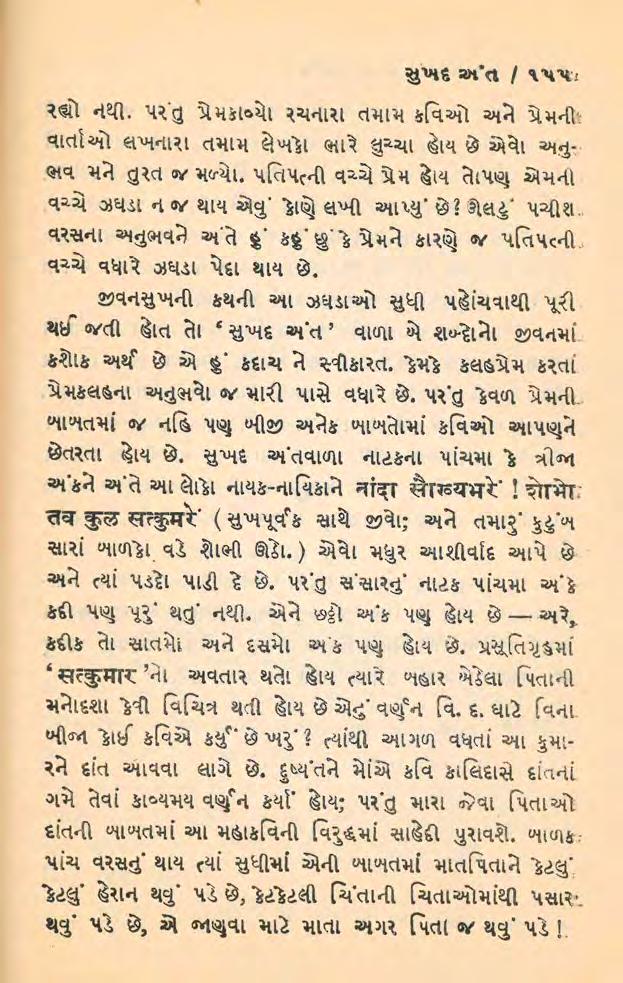 સુખદ અંત / ૧૫૫
રહ્યો નથી. પરંતુ પ્રેમકાવ્યો રચનારા તમામ કવિઓ અને પ્રેમની
વાર્તાઓ લખનારા તમામ લેખકો ભારે લુચ્ચા હોય છે એવો અનુ-
ભવ મને તુરત જ મળ્યો. પતિપત્ની વચ્ચે પ્રેમ હોય તોપણ એમની
વચ્ચે ઝઘડા ન જ થાય એવું કોણે લખી આપ્યું છે? ઊલટું પચીશ
વરસના અનુભવને અંતે હું કહું છું કે પ્રેમને કારણે જ પતિપત્ની
વચ્ચે વધારે ઝઘડા પેદા થાય છે.
જીવનસુખની કથની આ ઝઘડાઓ સુધી પહોંચવાથી પૂરી
થઈ જતી હોત તો ‘સુખદ અંત’ વાળા એ શબ્દોનો જીવનમાં
કશોક અર્થ છે એ હું કદાચ ને સ્વીકારત. કેમકે કલહપ્રેમ કરતાં
પ્રેમકલહના અનુભવો જ મારી પાસે વધારે છે. પરંતુ કેવળ પ્રેમની
બાબતમાં જ નહિ પણ બીજી અનેક બાબતોમાં કવિઓ આપણને
છેતરતા હોય છે. સુખદ અંતવાળા નાટકના પાંચમા કે ત્રીજા
અંકને અંતે આ લોકો નાયક-નાયિકાને नांदा सौख्यभरें ! शोभो
तव कुल सत्कुमरें (સુખપૂર્વક સાથે જીવો; અને તમારું કુટુંબ
સારાં બાળકો વડે શોભી ઊઠો.) એવો મધુર આશીર્વાદ આપે છે
અને ત્યાં પડદો પાડી દે છે. પરંતુ સંસારનું નાટક પાંચમા અંકે
કદી પણ પૂરું થતું નથી. એને છઠ્ઠો અંક પણ હોય છે — અરે,
કદીક તો સાતમો અને દસમો અંક પણ હોય છે. પ્રસૂતિગૃહમાં
‘सत्कुमार’નો અવતાર થતો હોય ત્યારે બહાર બેઠેલા પિતાની
મનોદશા કેવી વિચિત્ર થતી હોય છે એનું વર્ણન વિ. દ. ઘાટે વિના
બીજા કોઈ કવિએ કર્યું છે ખરું? ત્યાંથી આગળ વધતાં આ કુમા-
રને દાંત આવવા લાગે છે. દુષ્યંતને મોંએ કવિ કાલિદાસે દાંતનાં
ગમે તેવાં કાવ્યમય વર્ણન કર્યાં હોય; પરંતુ મારા જેવા પિતાઓ
દાંતની બાબતમાં આ મહાકવિની વિરુદ્ધમાં સાહેદી પુરાવશે. બાળક
પાંચ વરસનું થાય ત્યાં સુધીમાં એની બાબતમાં માતપિતાને કેટલું
કેટલું હેરાન થવું પડે છે, કેટકેટલી ચિંતાની ચિતાઓમાંથી પસાર
થવું પડે છે, એ જાણવા માટે માતા અગર પિતા જ થવું પડે !